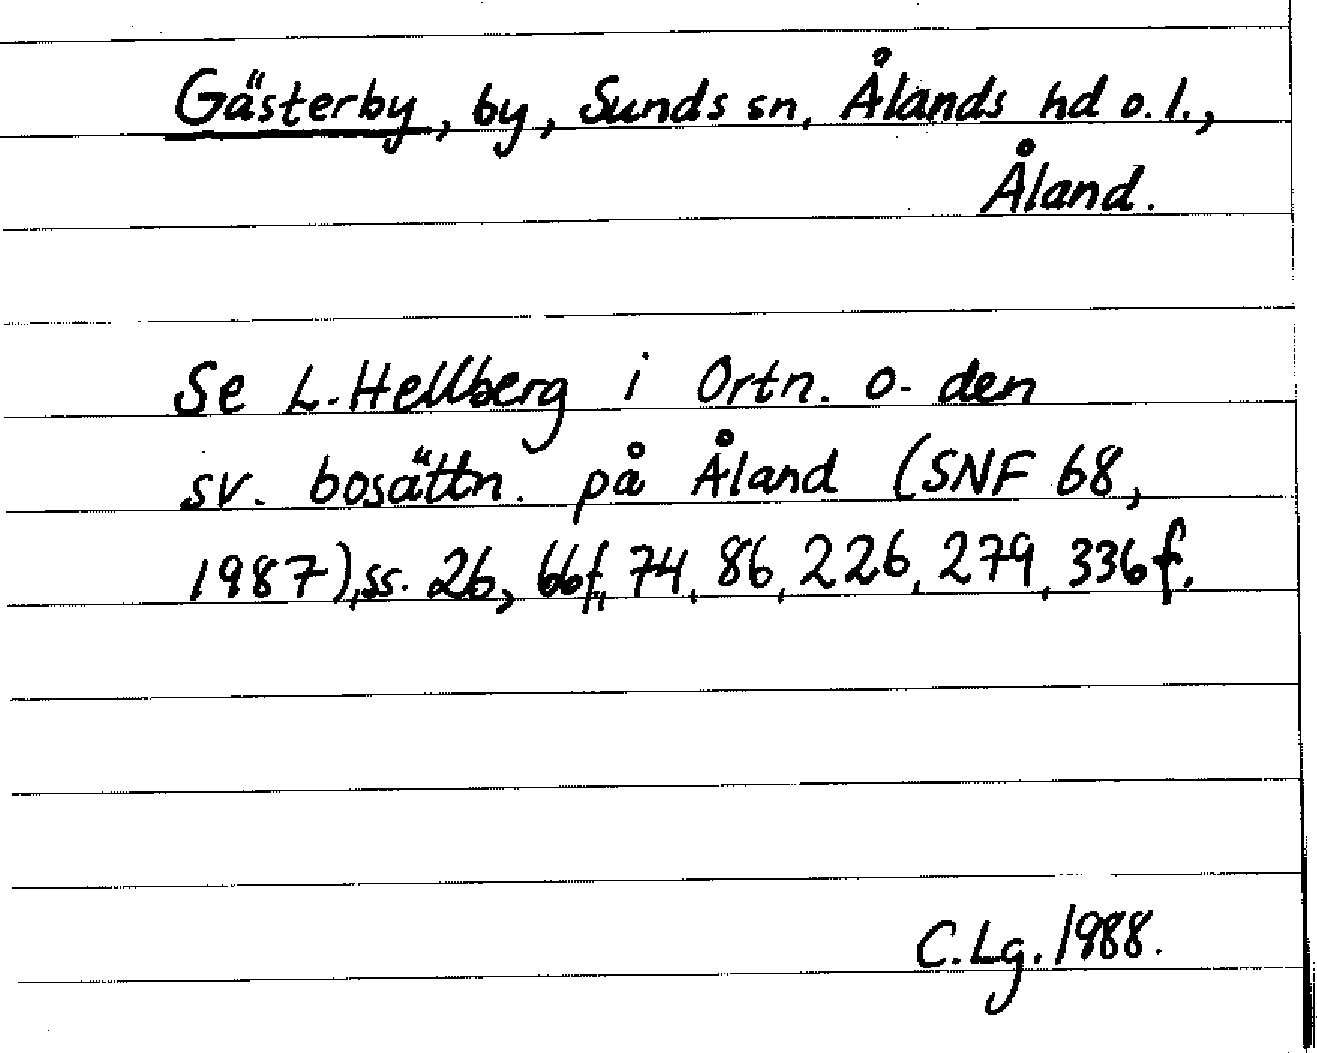 Gästerby, by, Sunds sn, Ålands hd o. l.,
Åland.
Se L. Hellberg i Ortn. o. den
sv. bosättn. på Åland (SNF 68,
1987), ss. 26, 66f, 74, 86, 226, 279, 336f.
C. Lg. 1988.